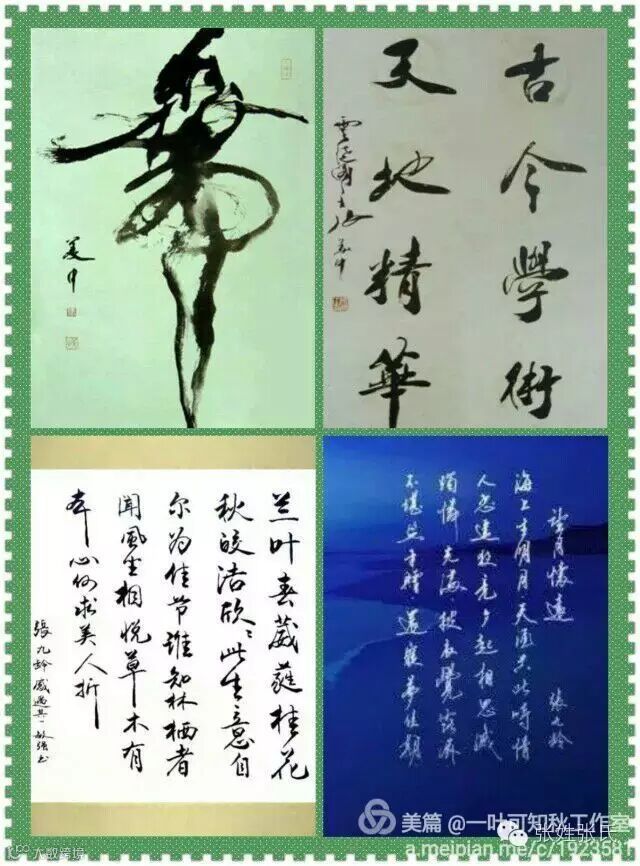 美中
古今學術
天地精華
兰叶春葳蕤桂花
秋皎洁欣〻此生意自
尔为佳节谁知林栖者
闻风坐相悦草木有
本心何求美人折
張九龄感遇其一
望月懷遠 張九龄
海上生明月天涯共此時情
人怨遥夜竟夕起相思滅
燭憐光满披衣覺露滋
不堪盈手贈還寢夢佳期
美篇 @一叶可知秋工作室
张姓张氏
a.meipian.me/c/1923581
大数跨境